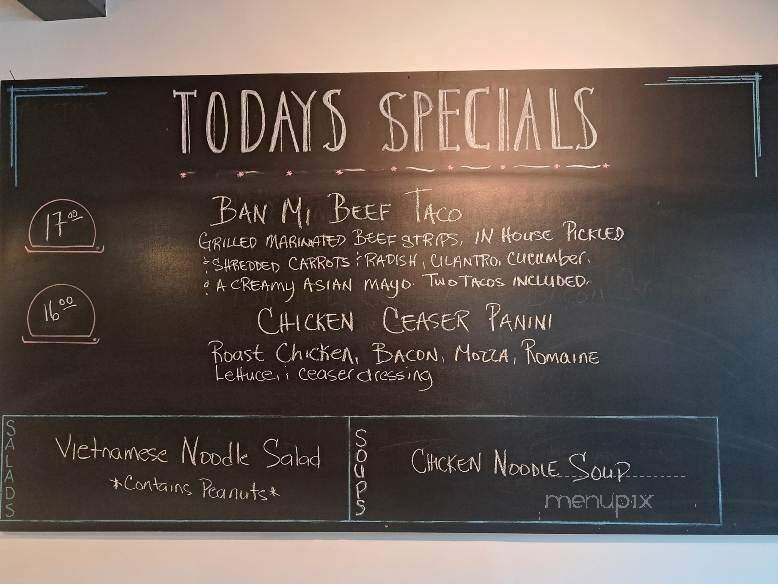 TODAYS SPECIALS
17.00
BAN MI BEEF TACO
GRILLED MARINATED BEEF STRIPS, IN HOUSE PICKLED
& SHREDDED CARROTS & RADISH, CILANTRO, CUCUMBER.
& A CREAMY ASIAN MAYO. TWO TACOS INCLUDED.
16.00
CHICKEN CEASER PANINI
ROAST CHICKEN, BACON, MOZZA, ROMAINE
LETTUCE, & CEASER DRESSING
SALADS
VIETNAMESE NOODLE SALAD
*CONTAINS PEANUTS*
SOUPS
CHICKEN NOODLE SOUP
menupix